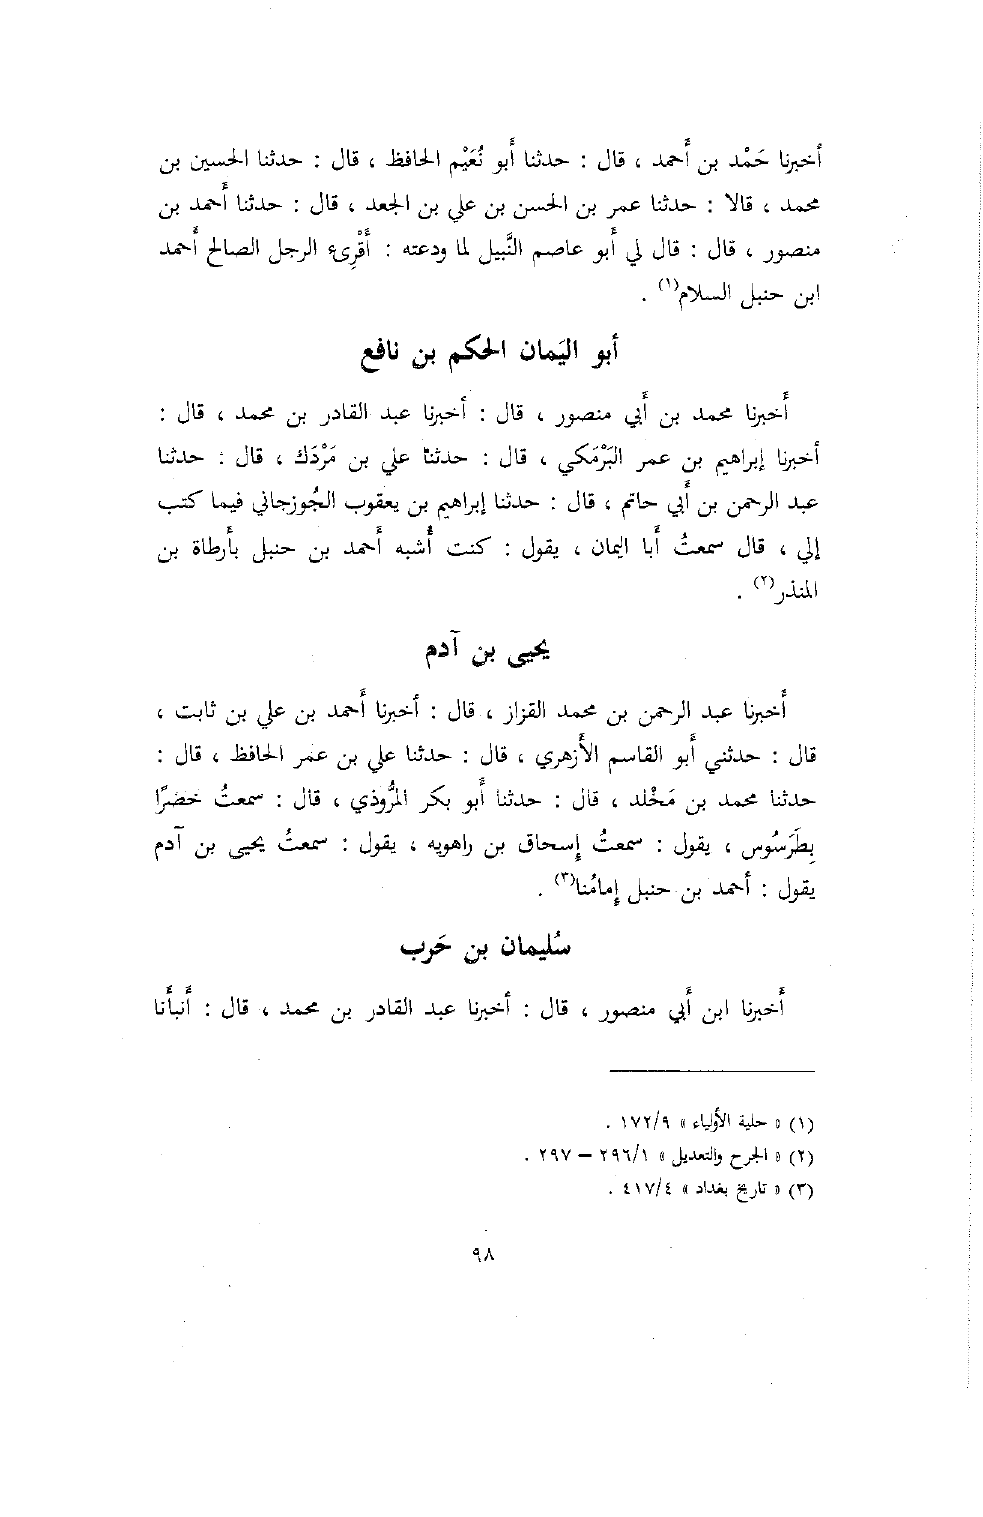 أخبرنا حَمْد بن أَحمد ، قال : حدثنا أَبو نُعَيْم الحافظ ، قال : حدثنا الحسين بن
محمد ، قالا : حدثنا عمر بن الحسن بن علي بن الجعد ، قال : حدثنا أَحمد بن
منصور ، قال : قال لي أَبو عاصم النَّبيل لما ودعته : أَقْرِىء الرجل الصالح أَحمد
ابن حنبل السلام(١) .
أبو اليَمان الحكم بن نافع
أَخبرنا محمد بن أَبي منصور ، قال : أخبرنا عبد القادر بن محمد ، قال :
أخبرنا إبراهيم بن عمر البَرْمَكي ، قال : حدثنا علي بن مَرْدَك ، قال : حدثنا
عبد الرحمن بن أَبي حاتم ، قال : حدثنا إبراهيم بن يعقوب الجُوزجاني فيما كتب
إلي ، قال سمعتُ أَبا اليمان ، يقول : كنت أُشبه أَحمد بن حنبل بأَرطاة بن
المنذر(٢) .
يحيى بن آدم
أَخبرنا عبد الرحمن بن محمد القزاز ، قال : أخبرنا أَحمد بن علي بن ثابت ،
قال : حدثني أَبو القاسم الأَزهري ، قال : حدثنا علي بن عمر الحافظ ، قال :
حدثنا محمد بن مَخْلد ، قال : حدثنا أَبو بكر المرُّوذي ، قال : سمعتُ خضرًا
بِطَرَسُوس ، يقول : سمعتُ إِسحاق بن راهويه ، يقول : سمعتُ يحيى بن آدم
يقول : أحمد بن حنبل إِمامُنا(٣) .
سُليمان بن حَرب
أَخبرنا ابن أَبي منصور ، قال : أخبرنا عبد القادر بن محمد ، قال : أَنبأَنا
(١) « حلية الأولياء » ١٧٢/٩ .
(٢) « الجرح والتعديل » ٢٩٦/١ – ٢٩٧ .
(٣) « تاريخ بغداد » ٤١٧/٤ .
٩٨